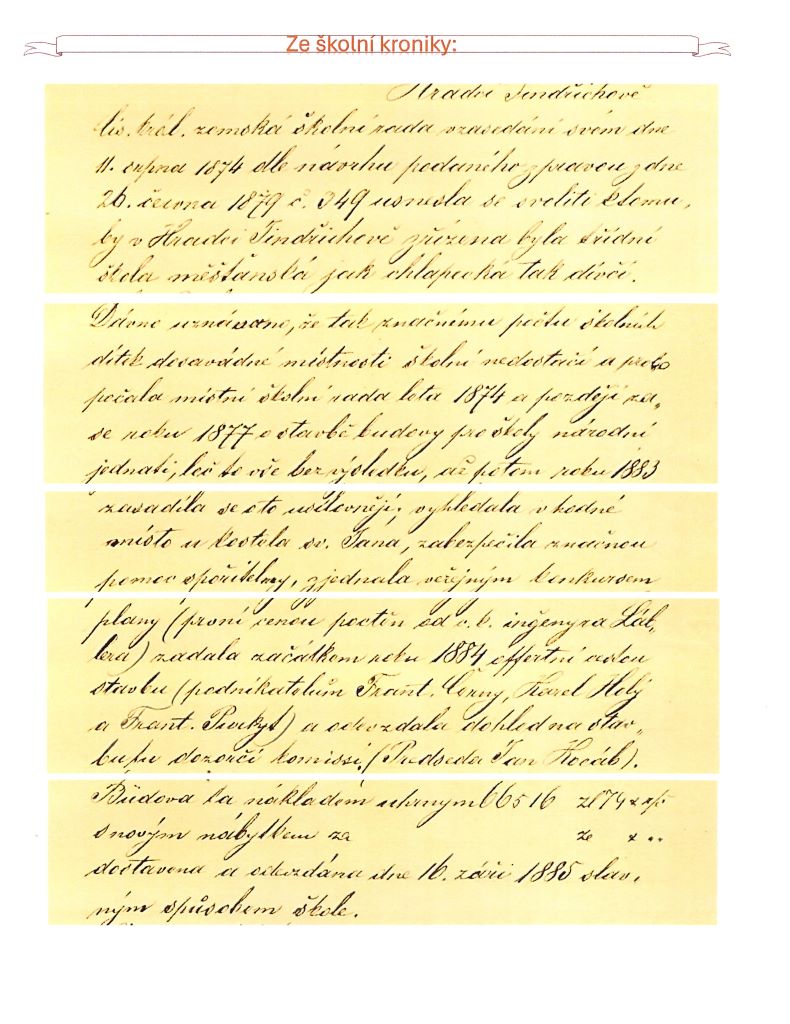 Ze školní kroniky:
Hradci Jindřichově
cís. král. zemská školní rada v zasedání svém dne
11. srpna 1874 dle návrhu podaného zpravou z dne
26. června 1879 č. 349 usnesla se svoliti k tomu,
by v Hradci Jindřichově zřízena byla třídní
škola měšťanská jak chlapecká tak dívčí.
Dávno uznáváno, že tak značnímu počtu školních
dítek dosavádné místnosti školní nedostačí a proto
počala místní školní rada leta 1874 a později za„
se roku 1877 o stavbě budovy pro školy národní
jednati, leč to vše bez výsledku, až potom roku 1883
zasadila se oto usilovněji; vyhledala vhodné
místo u kostela sv. Jana, zabezpečila značnou
pomoc spořitelny, zjednala veřejným konkursem
plány (první cenou poctěn od c. k. ingenyra
) zadala začátkem roku 1884 offertní cestou
stavbu (podnikatelům Frant. Černý, Karel Holý
a Frant. ) a odevzdala dohled na stav„
bu tu dozorčí komissi. (Předseda Jan Kocáb).
Budova ta nákladem uhrnym 66516 zl 74
s novým nábytkem za zl
dostavena a odevzdána dne 16. září 1885 slav„
ným spůsobem škole.